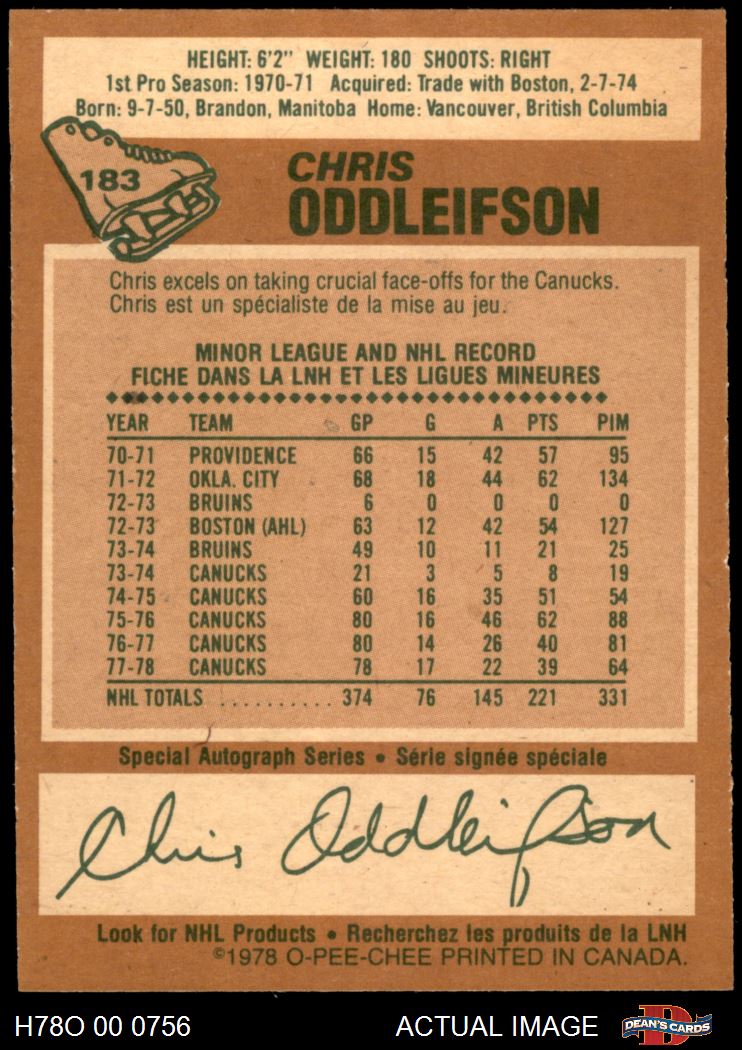 HEIGHT: 6'2" WEIGHT: 180 SHOOTS: RIGHT
1st Pro Season: 1970-71 Acquired: Trade with Boston, 2-7-74
Born: 9-7-50, Brandon, Manitoba Home: Vancouver, British Columbia
183
CHRIS
ODDLEIFSON
Chris excels on taking crucial face-offs for the Canucks.
Chris est un spécialiste de la mise au jeu.
MINOR LEAGUE AND NHL RECORD
FICHE DANS LA LNH ET LES LIGUES MINEURES
YEAR TEAM GP G A PTS PIM
70-71 PROVIDENCE 66 15 42 57 95
71-72 OKLA. CITY 68 18 44 62 134
72-73 BRUINS 6 0 0 0 0
72-73 BOSTON (AHL) 63 12 42 54 127
73-74 BRUINS 49 10 11 21 25
73-74 CANUCKS 21 3 5 8 19
74-75 CANUCKS 60 16 35 51 54
75-76 CANUCKS 80 16 46 62 88
76-77 CANUCKS 80 14 26 40 81
77-78 CANUCKS 78 17 22 39 64
NHL TOTALS .......... 374 76 145 221 331
Special Autograph Series • Série signée spéciale
Chris Oddleifson
Look for NHL Products • Recherchez les produits de la LNH
©1978 O-PEE-CHEE PRINTED IN CANADA.
H78O 00 0756 ACTUAL IMAGE D DEAN'S CARDS